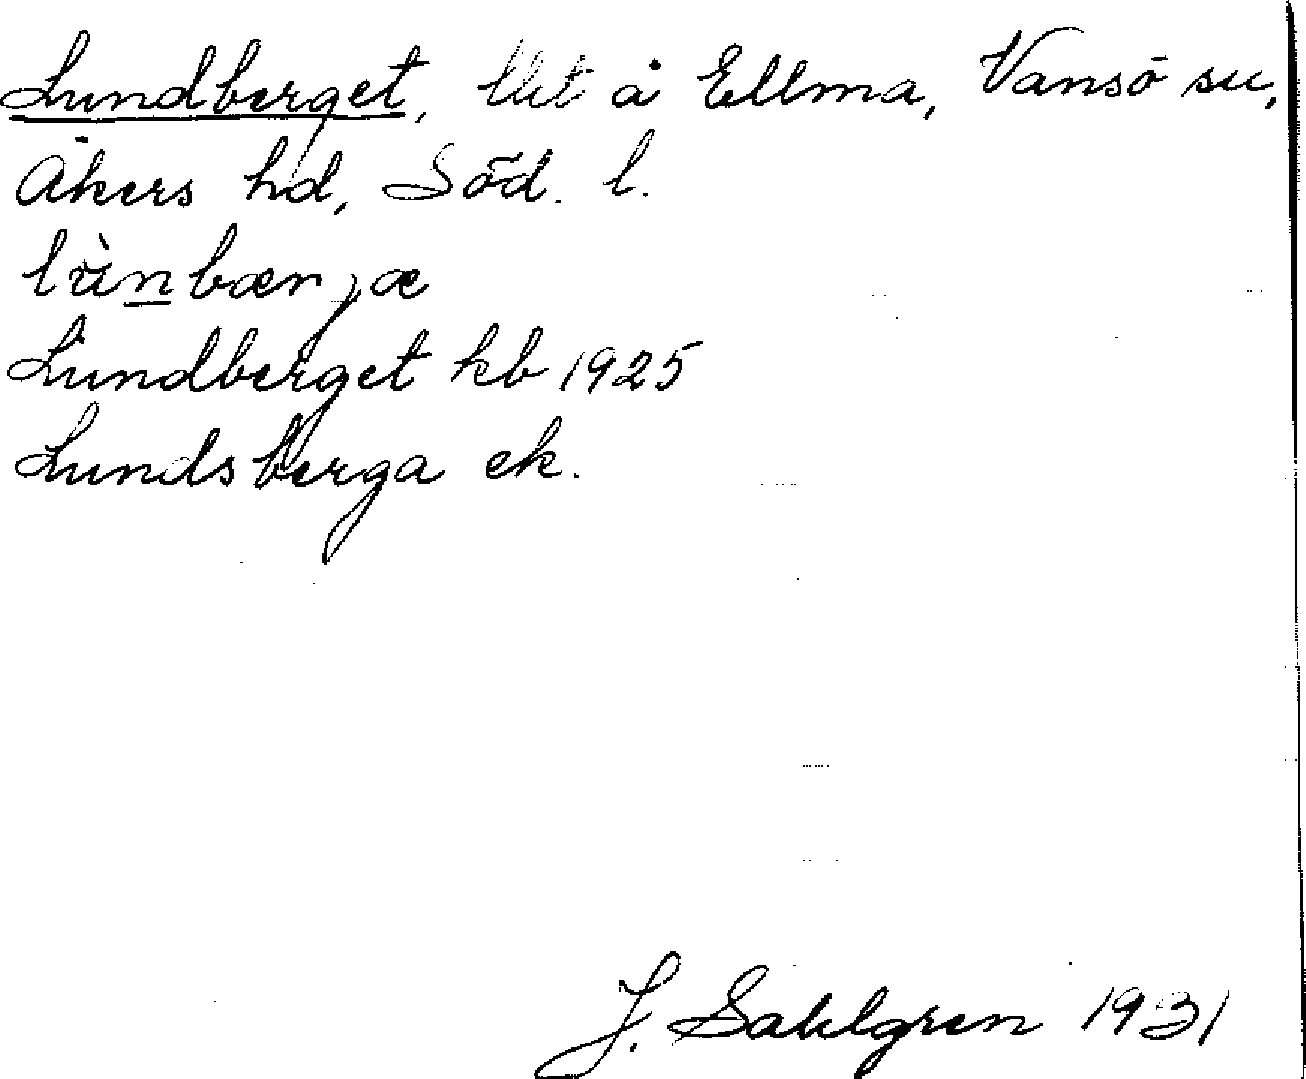 Lundberget, lht å Ellma, Vansö sn,
Åkers hd, Söd. l.
lùnbærjæ
Lundberget kb 1925
Lundsberga ek.
J. Sahlgren 1931